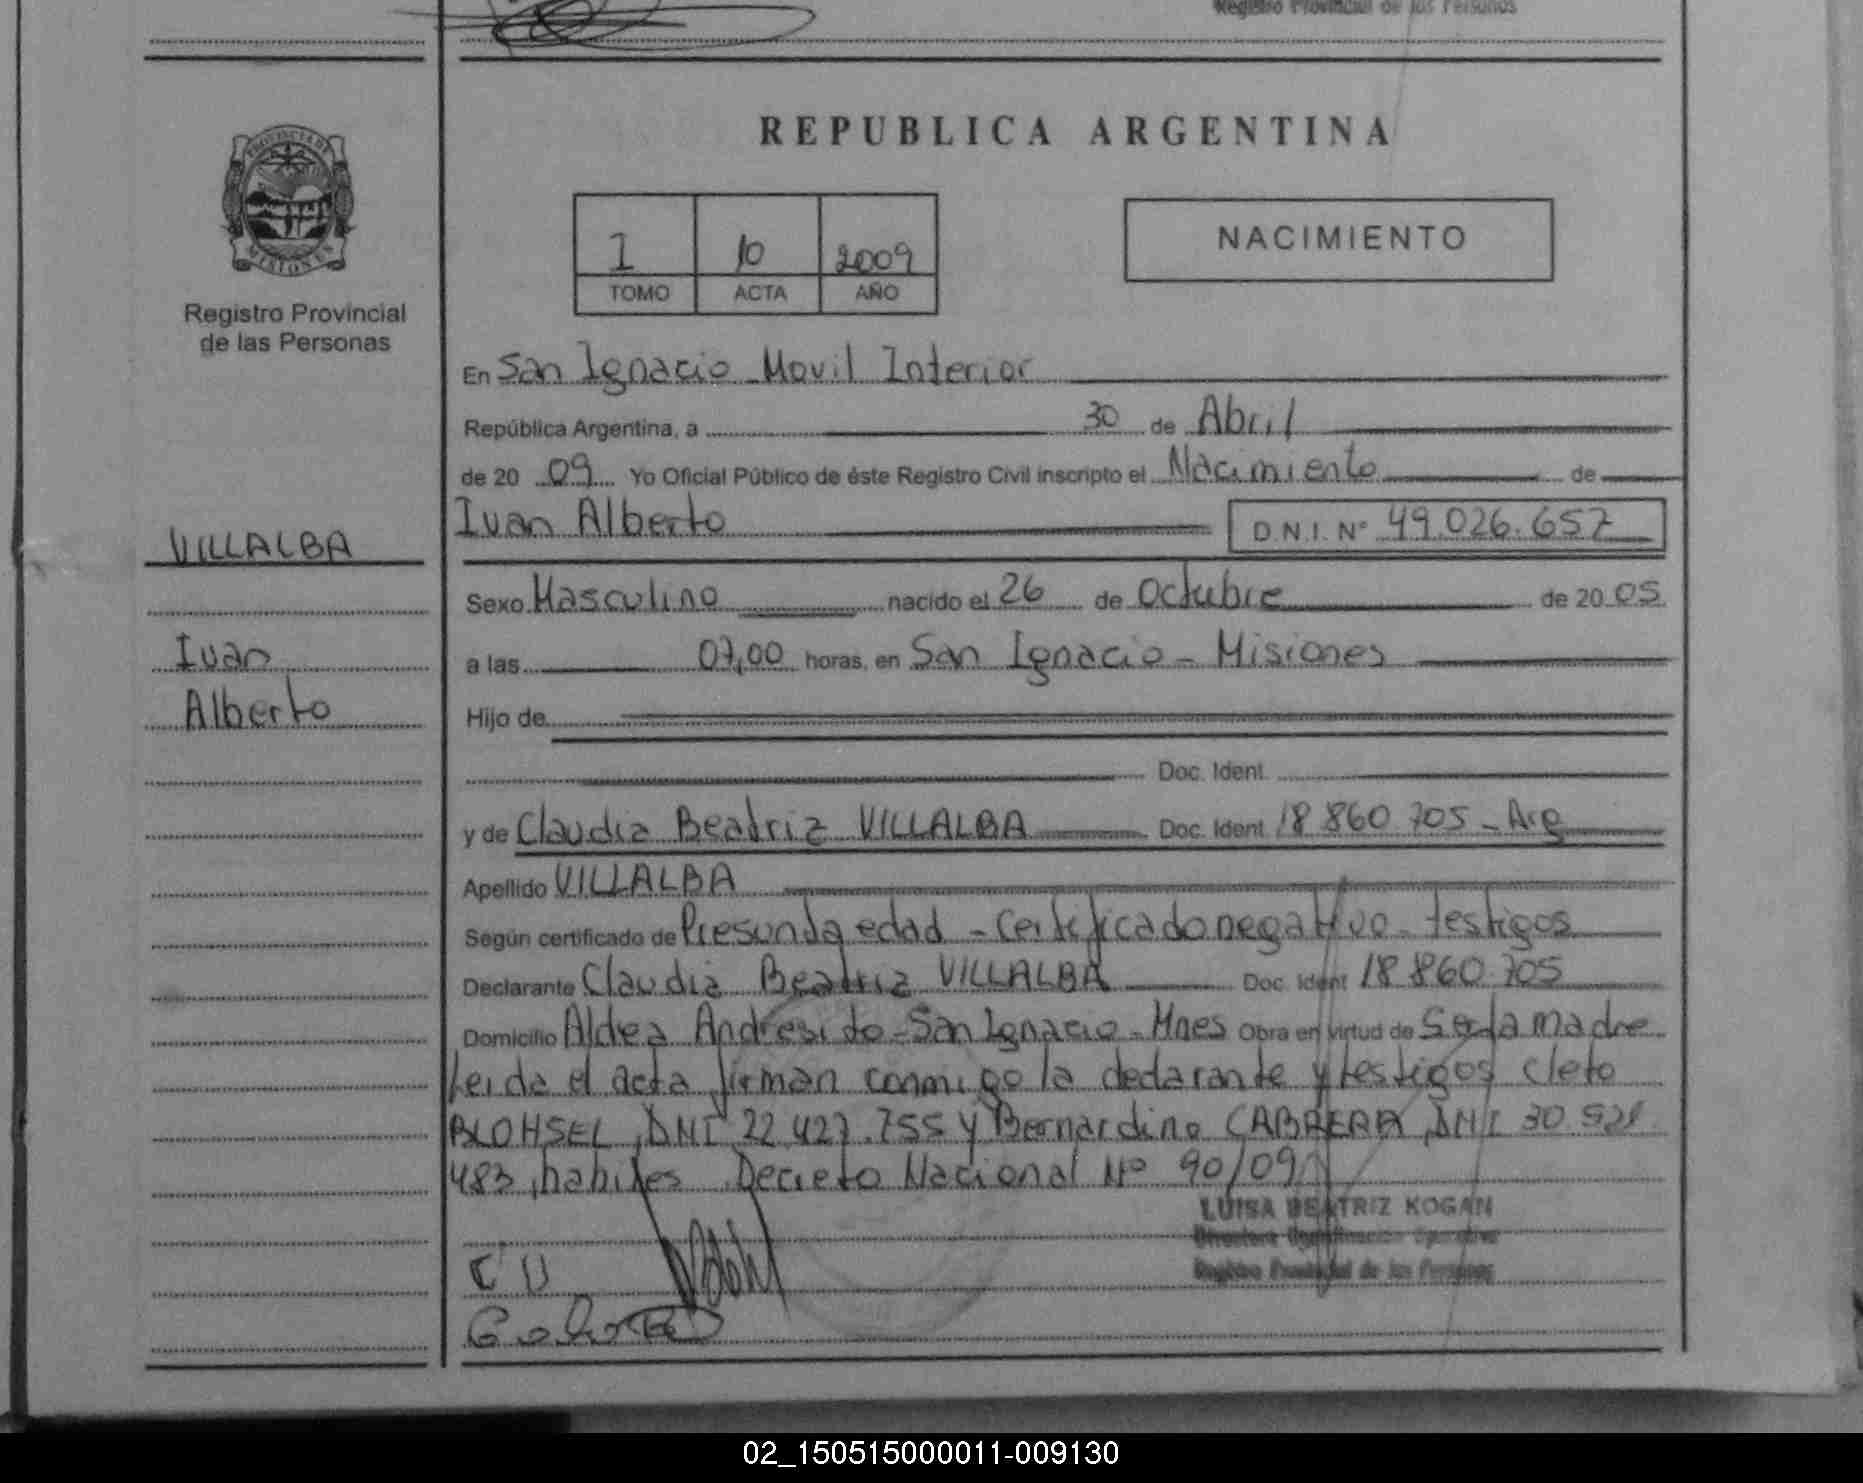 Registro Provincial de las Personas
REPUBLICA ARGENTINA
PROVINCIA DE MISIONES
Registro Provincial
de las Personas
I 10 2009
TOMO ACTA AÑO
NACIMIENTO
En San Ignacio Movil Interior
República Argentina, a 30 de Abril
de 20 09 Yo Oficial Público de éste Registro Civil inscripto el Nacimiento de
Ivan Alberto D.N.I. Nº 49.026.657
VILLALBA
Ivan
Alberto
Sexo Masculino nacido el 26 de Octubre de 20 05
a las 07,00 horas, en San Ignacio - Misiones
Hijo de
Doc. Ident.
y de Claudia Beatriz VILLALBA Doc. Ident 18 860 705 - Arg
Apellido VILLALBA
Según certificado de Presunta edad - Certificado negativo - testigos
Declarante Claudia Beatriz VILLALBA Doc. Ident 18 860 705
Domicilio Aldea Andresito - San Ignacio - Mnes Obra en virtud de Ser la madre
Leida el acta firman conmigo la declarante y testigos Cleto
BLOHSEL, DNI 22.427.755 y Bernardino CABRERA, DNI 30.521
483, habiles. Decreto Nacional Nº 90/09
LUISA BEATRIZ KOGAN
Registro Provincial de las Personas
C V
02_150515000011-009130